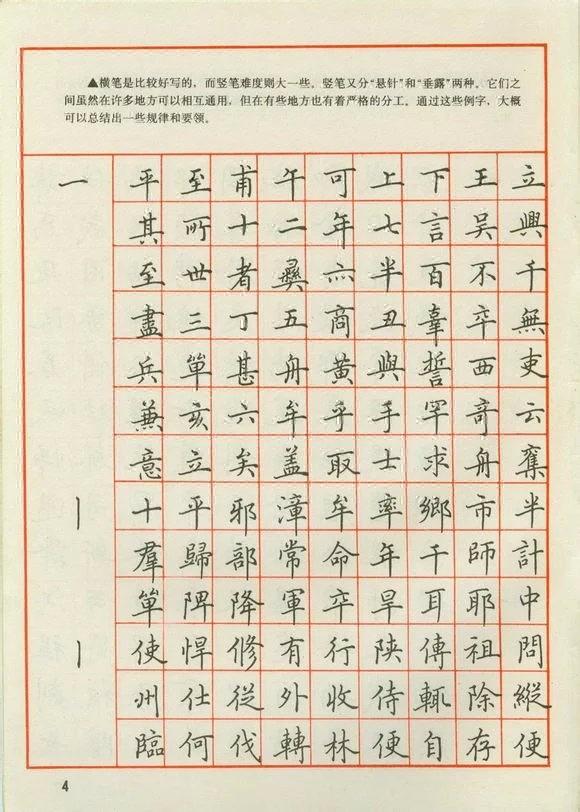 ▲横笔是比较好写的，而竖笔难度则大一些。竖笔又分“悬针”和“垂露”两种。它们之
间虽然在许多地方可以相互通用，但在有些地方也有着严格的分工。通过这些例字，大概
可以总结出一些规律和要领。
一 平 至 甫 午 可 上 下 王 立
其 所 十 二 年 七 言 吴 興
至 世 者 彝 六 半 百 不 千
盡 三 丁 五 商 丑 辜 卒 無
兵 箪 甚 舟 黄 與 誓 西 吏
兼 亥 六 牟 乎 手 罕 奇 云
意 立 矣 盖 取 士 求 舟 奪
丨 十 平 邪 漳 牟 率 鄉 市 半
羣 歸 部 常 命 年 千 師 計
丨 單 陴 降 軍 卒 旱 耳 耶 中
使 悍 修 有 行 陕 傳 祖 問
州 仕 從 外 收 侍 輒 除 縱
臨 何 伐 轉 林 便 自 存 便
4